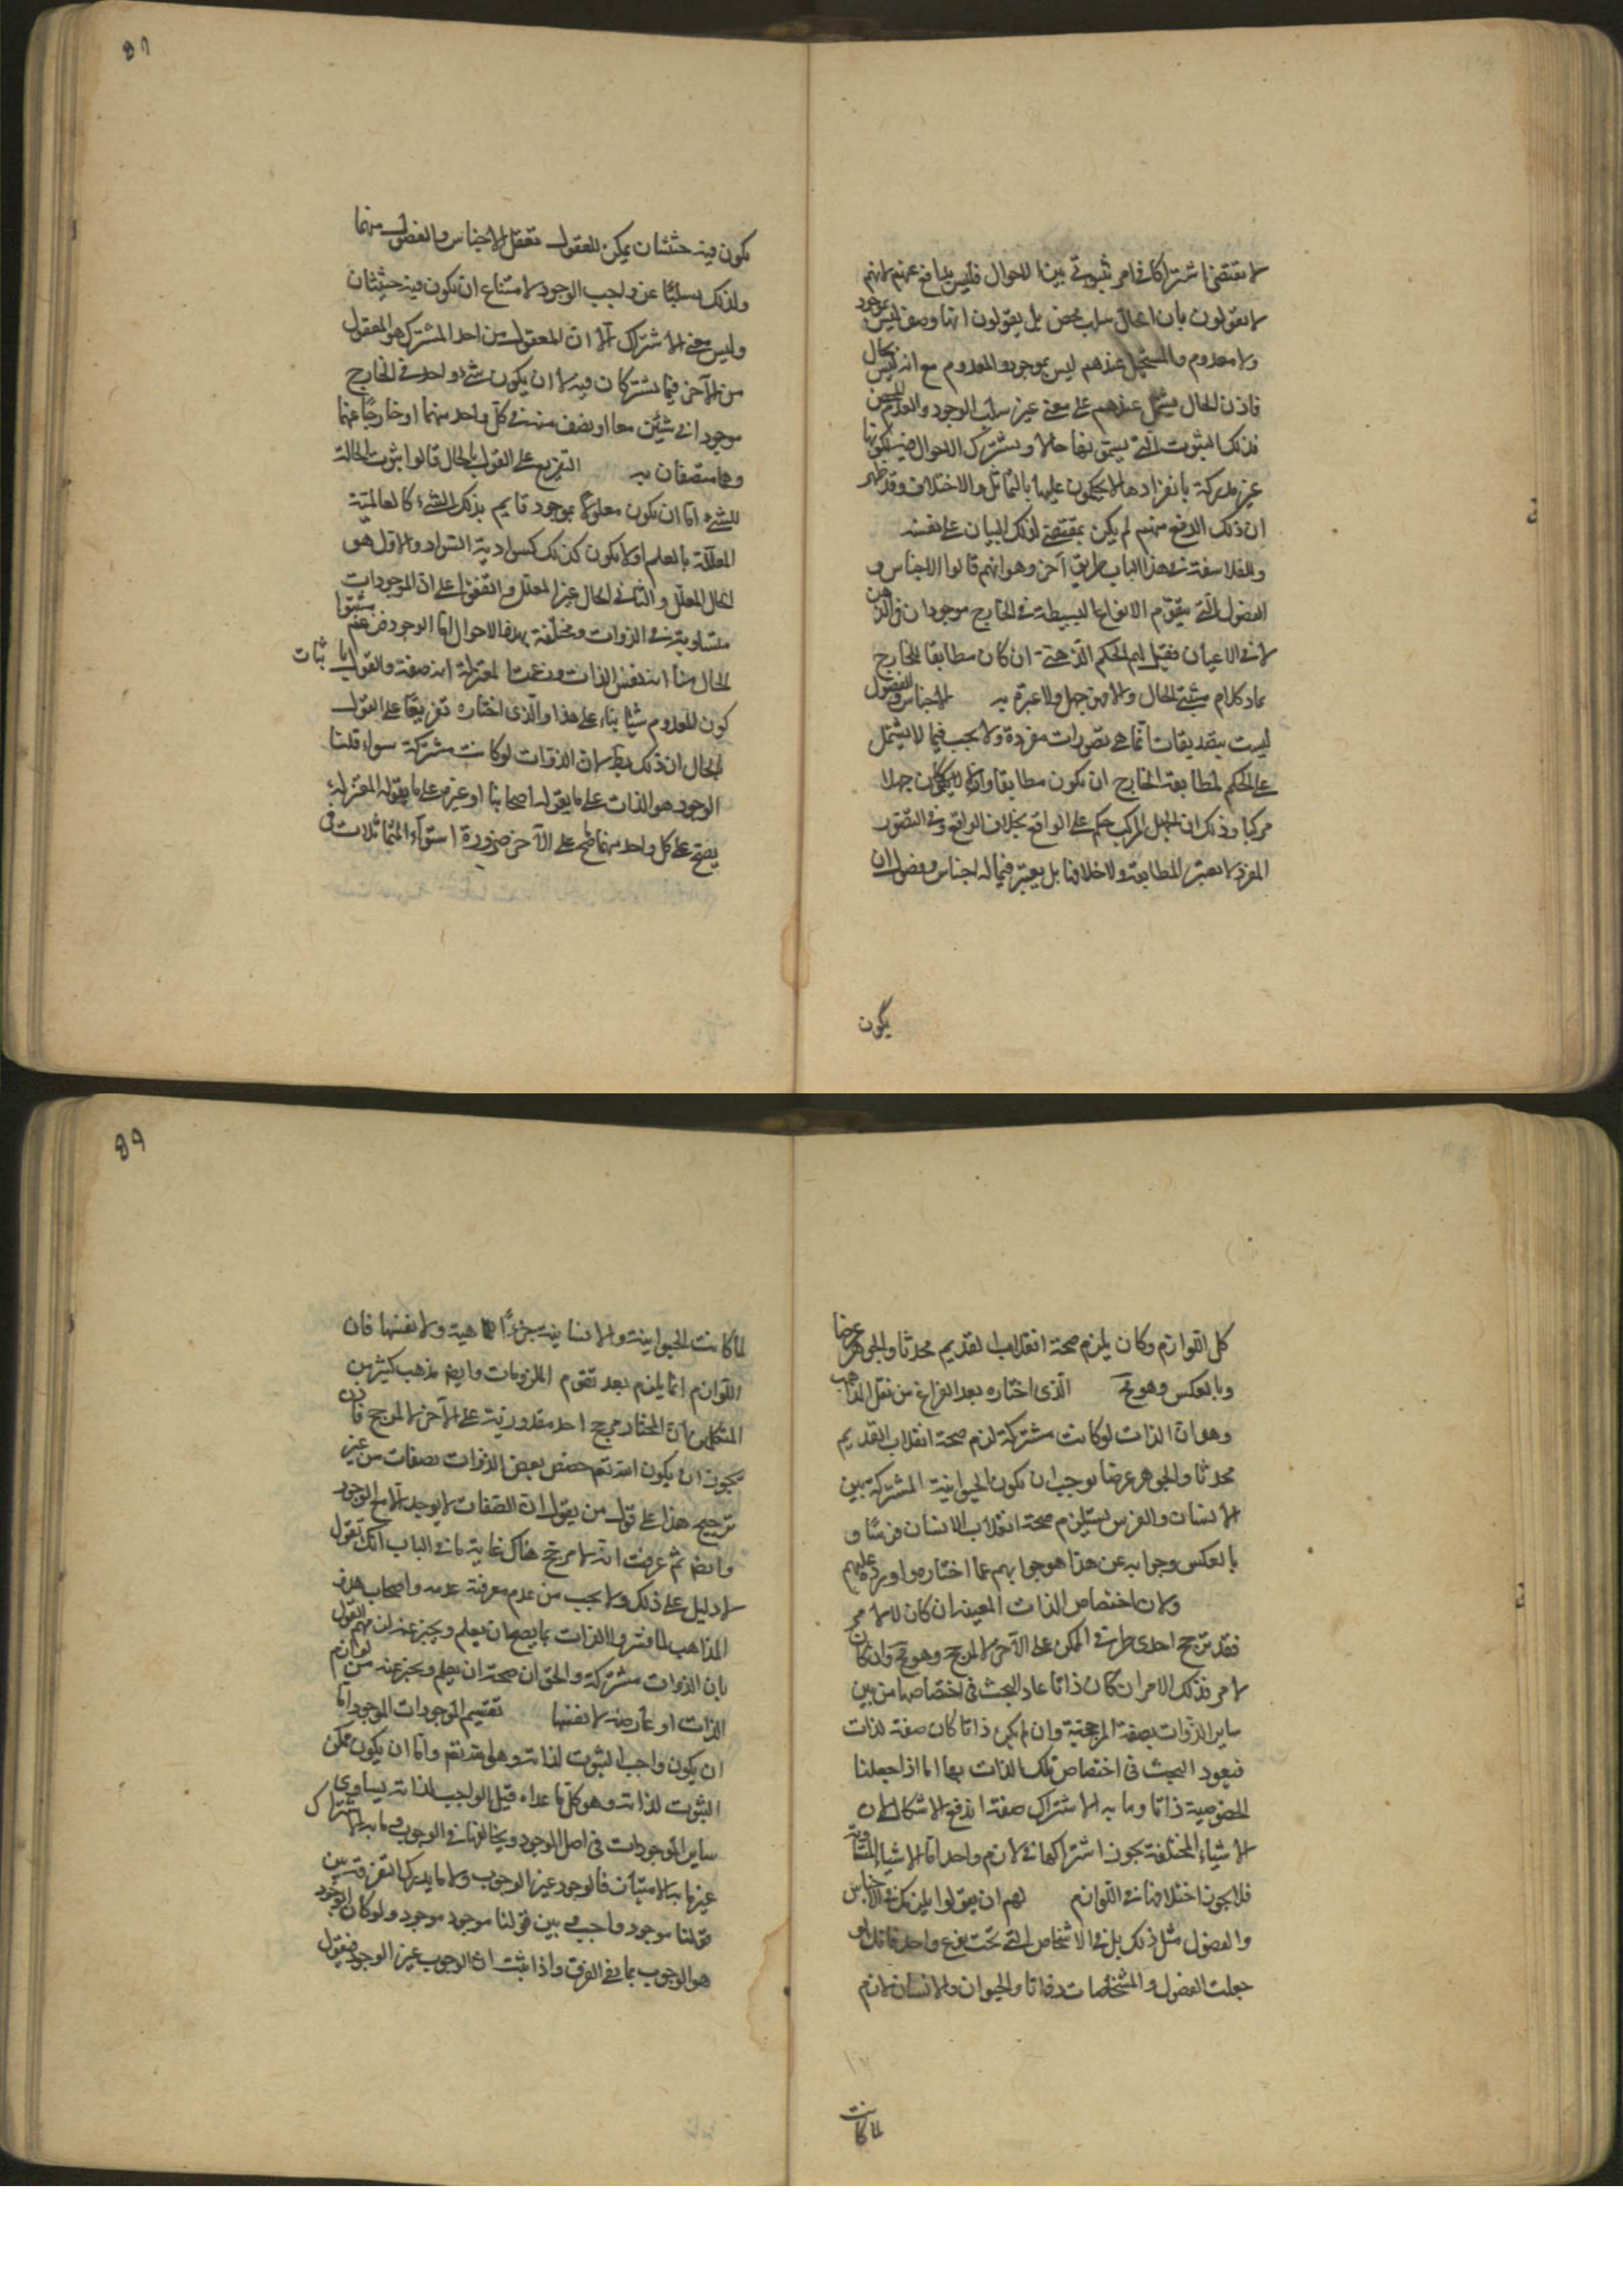 لا يقتضى اشتراكا فى امر ثبوتى بين الاحوال فليس بدافع عنهم لانهم
لا يقولون بان الحال سلب محض بل يقولون انها وصف ليس بموجود
ولا معدوم والمستحيل عندهم ليس بموجود ولا معدوم مع انه ليس بحال
فاذن الحال يشتمل عندهم على معنى غير سلب الوجود والعدم المحض
فذلك الثبوت التى يسمونها حالا ويشترك الاحوال فيه لكونها
غير مدركة بانفرادها لا يحكمون عليها بالتماثل والاختلاف وقد ظهر
ان ذلك الدفع منهم لم يكن بمقتضى لذلك البيان على نفسه
وللفلاسفة فى هذا الباب طريق آخر وهو انهم قالوا الاجناس و
الفصول التى يتقوم الانواع البسيطة فى الخارج موجودان فى الذهن
لا فى الاعيان فقيل لهم الحكم الذهنى ان كان مطابقا للخارج
عاد كلام مثبتى الحال والا فهو جهل ولا عبرة به الاجناس والفصول
ليست بتصديقات انما هى تصورات مفردة ولا يجب فيما لا يشتمل
على الحكم المطابقة الخارج ان يكون مطابقا والا لكان جهلا
مركبا وذلك ان الجهل المركب حكم على الواقع بخلاف الواقع وفى التصور
المفرد لا يعتبر المطابقة ولا خلافها بل يعتبر فيما له اجناس وفصول ان
يكون
89
يكون فيه حيثيتان يمكن للعقول تعقل الاجناس والفصول منهما
ولذلك يسلبها عن واجب الوجود لامتناع ان يكون فيه حيثيتان
وليس معنى الاشتراك الا ان المعقول من احد المشتركين هو المعقول
من الآخر فيما يشتركان فيه لا ان يكون شىء واحد فى الخارج
موجودا فى شيئين معا او نصف منه فى كل واحد منهما او خارجا عنهما
وهما متصفان به التفريع على القول بالحال قالوا ثبوت الحالة
للشىء اما ان يكون معلولا بموجود قايم بذلك الشىء كالعالمية
المعللة بالعلم او لا يكون كذلك كسوادية السواد والاول هو
الحال المعلل والثانى الحال غير المعلل واتفقوا على ان الموجودات
متساوية فى الذوات ومختلفة بهذه الاحوال اما الوجود فزعم مثبتوا
الحال منا انه نفس الذات وزعمت المعتزلة انه صفة والقول باثبات
كون المعدوم شيا بناء على هذا والذى اختاره تفريعا على القول
بالحال ان ذلك بط لان الذوات لو كانت مشتركة سواء قلنا
الوجود هو الذات على ما يقوله اصحابنا او غيره على ما يقوله المعتزلة
يصح على كل واحد منها ما صح على الآخر ضرورة استواء المتماثلات فى
كل اللوازم وكان يلزم صحة انقلاب القديم محدثا والجوهر عرضا
وبالعكس وهو مح الذى اختاره بعد الفراغ من نقل المذاهب
وهو ان الذات لو كانت مشتركة لزم صحة انقلاب القديم
محدثا والجوهر عرضا يوجب ان يكون الحيوانية المشتركة بين
الانسان والفرس يستلزم صحة انقلاب الانسان فرسا و
بالعكس وجوابه عن هذا هو جوابهم عما اختاره واورده عليهم
ولان اختصاص الذات المعينة ان كان لا لامر
فقد ترجح احدى طرفى الممكن على الآخر لا لمرجح وهو مح وان كان
لامر فذلك الامر ان كان ذاتا عاد البحث فى اختصاصها من بين
ساير الذوات بصفة المرجحية وان لم يكن ذاتا كان صفة لذات
فيعود البحث فى اختصاص تلك الذات بها اما اذا جعلنا
الخصوصية ذاتا وما به الاشتراك صفة اندفع الاشكال لان
الاشياء المختلفة يجوز اشتراكها فى لازم واحد اما الاشياء المتساوية
فلا يجوز اختلافها فى اللوازم لهم ان يقولوا يلزمك فى الاجناس
والفصول مثل ذلك بل فى الاشخاص التى تحت نوع واحد فانك لو
جعلت الفصول والمشخصات ذواتا والحيوان والانسان لازم
لما كانت
99
لما كانت الحيوانية والانسانية جزءا لماهية ولا نفسها فان
اللوازم انما يلزم بعد تقوم الملزومات وايضا مذهب كثير من
المتكلمين ان المختار مرجح احد مقدوريه على الآخر لا لمرجح فاذن
يجوز ان يكون الله تعم خصص بعض الذوات بصفات من غير
ترجيح هذا على قول من يقول ان الصفات لا يوجد الا مع الوجود
وايضا ثم عرفت انه لا مرجح هناك غاية ما فى الباب انك تقول
لا دليل على ذلك ولا يجب من عدم معرفته عدمه واصحاب هذه
المذاهب لما فسروا الذات بما يصح ان يعلم ويخبر عنه لزمهم القول
بان الذوات مشتركة والحق ان صحة ان يعلم ويخبر عنه من لوازم
الذات او عارضه لا نفسها تقسيم الموجودات الموجود اما
ان يكون واجب الثبوت لذاته وهو الله تعم واما ان يكون ممكن
الثبوت لذاته وهو كل ما عداه قيل الواجب لذاته يساوى
ساير الموجودات فى اصل الوجود ويخالفها فى الوجوب وما به الاشتراك
غير ما به الامتياز فالوجود غير الوجوب ولانا ندرك التفرقة بين
قولنا موجود واجب وبين قولنا موجود موجود ولو كان الوجود
هو الوجوب لما بقى الفرق واذا ثبت ان الوجوب غير الوجود فنقول